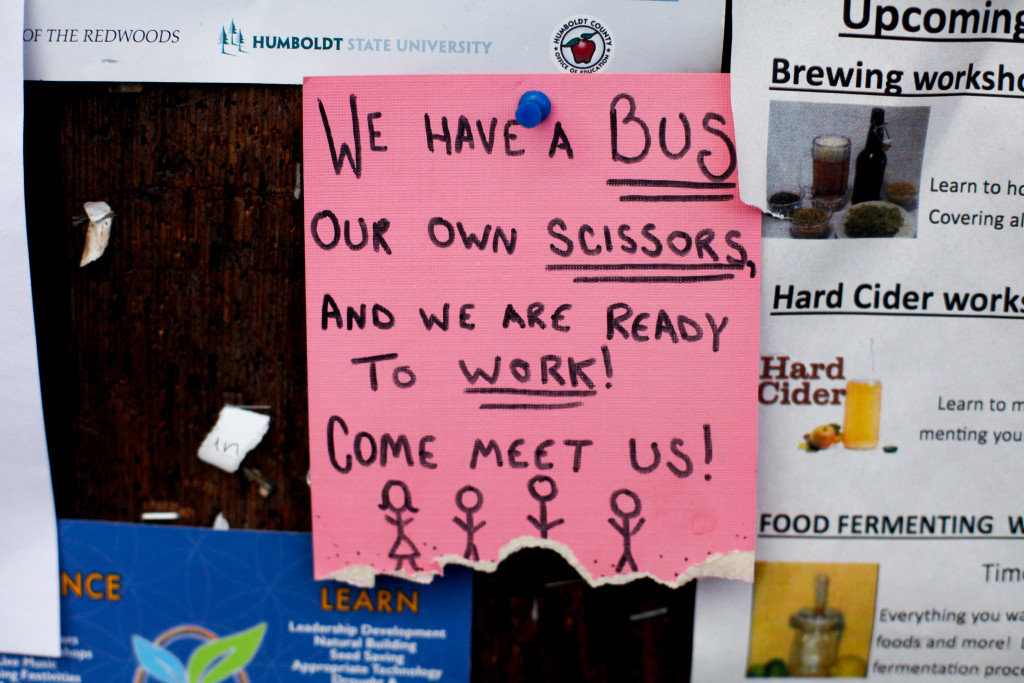 OF THE REDWOODS
HUMBOLDT STATE UNIVERSITY
HUMBOLDT COUNTY
OFFICE OF EDUCATION
WE HAVE A BUS
OUR OWN SCISSORS,
AND WE ARE READY
TO WORK!
COME MEET US!
in
LEARN
Leadership Development
Natural Building
Seed Saving
Appropriate Technology
Live Music
Upcoming
Brewing
Learn to
Covering
Hard Cider
Hard
Cider
Learn to
menting you
FOOD FERMENTING
Everything you
foods and more!
fermentation